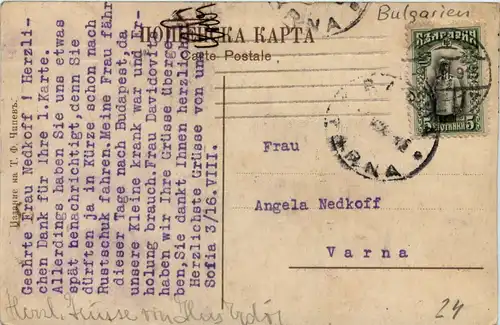 Bulgarien
ПОЩЕНСКА КАРТА
Carte Postale
VARNA
БЪЛГАРИЯ
5 СТОТИНКИ 5
VARNA
Frau
Angela Nedkoff
Varna
Geehrte Frau Nedkoff ! Herzli-
chen Dank für Ihre l.Karte.
Allerdings haben Sie uns etwas
spät benachrichtigt, denn Sie
dürften ja in Kürze schon nach
Rustschuk fahren.Meine Frau fährt
dieser Tage nach Budapest,da
unsere Kleine krank war und Er-
holung brauch.Frau Davidovit
haben wir Ihre Grüsse überge
ben,Sie dankt Ihnen herzlich
Herzlichste Grüsse von uns
Sofia 3/16.VIII.
Издание на Т. Ф. Чипевъ.
Herzl. Grüsse von
24